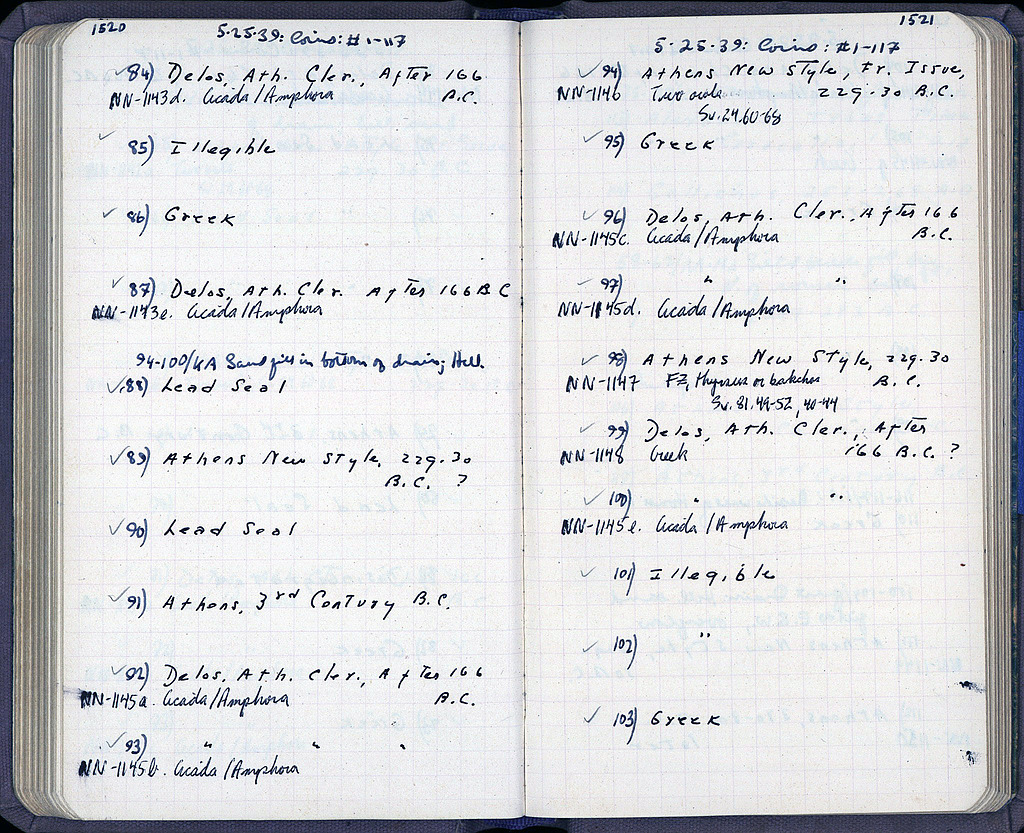 1520
5·25·39: Coins: #1-117
✓ 84) Delos, Ath. Cler., After 166
NN-1143d. Cicada/Amphora B.C.
✓ 85) Illegible
✓ 86) Greek
✓ 87) Delos, Ath. Cler. After 166 B C
NN-1143e. Cicada/Amphora
94-100/KA Sand fill in bottom of drain; Hell.
✓ 88) Lead Seal
✓ 89) Athens New Style, 229·30
B.C. ?
✓ 90) Lead Seal
✓ 91) Athens, 3rd Century B.C.
✓ 92) Delos, Ath. Cler., After 166
NN-1145a. Cicada/Amphora B.C.
✓ 93) " " "
NN-1145b. Cicada/Amphora
1521
5·25·39: Coins: #1-117
✓ 94) Athens New Style, Fr. Issue,
NN-1146 Two owls 229·30 B.C.
Sv. 24.60-68
✓ 95) Greek
✓ 96) Delos, Ath. Cler., After 166
NN-1145c. Cicada/Amphora B.C.
✓ 97) " "
NN-1145d. Cicada/Amphora
✓ 98) Athens New Style, 229·30
NN-1147 thyrsus or bakchos B.C.
Sv. 81.49-52, 40-44
✓ 99) Delos, Ath. Cler., After
NN-1148 Greek 166 B.C. ?
✓ 100) " "
NN-1145e. Cicada/Amphora
✓ 101) Illegible
✓ 102) "
✓ 103) Greek